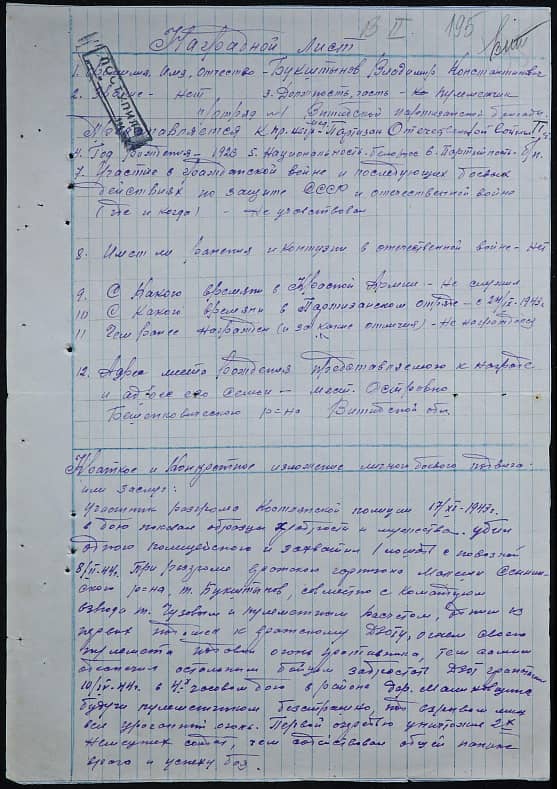 В II 195
Наградной лист
1. Фамилия, Имя, Отчество - Букштынов Владимир Константинович
2. Звание - Нет 3. Должность, часть - пулеметчик
п/отряд №1 Витебской партизанской бригады
Представляется к Партизан Отечественной войны II
4. Год рождения - 1923 5. Национальность - белорус 6. Партийность - б/п.
7. Участие в гражданской войне и последующих боевых
действиях по защите СССР и отечественной войне
(где и когда) - Не участвовал
8. Имеет ли ранения и контузии в отечественной войне - Нет
9. С какого времени в Красной Армии - Не служил
10 С какого времени в Партизанском отряде - с 1943
11 Чем ранее награжден (и за какие отличия) - Не награждался
12. Адрес места рождения представляемого к награде
и адрес его семьи - мест. Островно
Бешенковичского р-на Витебской обл.
Краткое и конкретное изложение личного боевого подвига
или заслуг:
Участник разгрома полиции 17/XI-1943г.
в бою показал образцы храбрости и мужества. убил
одного полицейского и захватил 1 лошадь с повозкой
8/II-44г. При разгроме вражеского гарнизона
р-на, т. Букштынов, совместно с командиром
взвода т. и пулеметным расчетом, одним из
первых к вражескому Дзоту, огнем своего
пулемета огонь противника, тем самым
обеспечил остальным бойцам забросать Дзот гранатами
10/IV-44г. в 4х часовом бою в районе дер.
будучи пулеметчиком бесстрашно,
вел ураганный огонь. Первой очередью уничтожил 2х
немецких солдат, чем содействовал общей панике
врага и успеху боя.